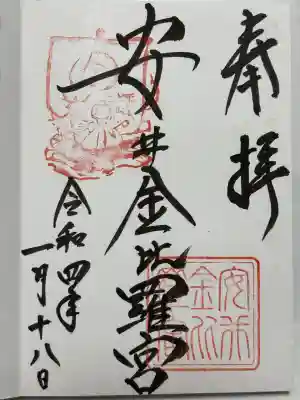 奉拝
安井金比羅宮
令和四年
一月十八日
安井
金比
羅宮